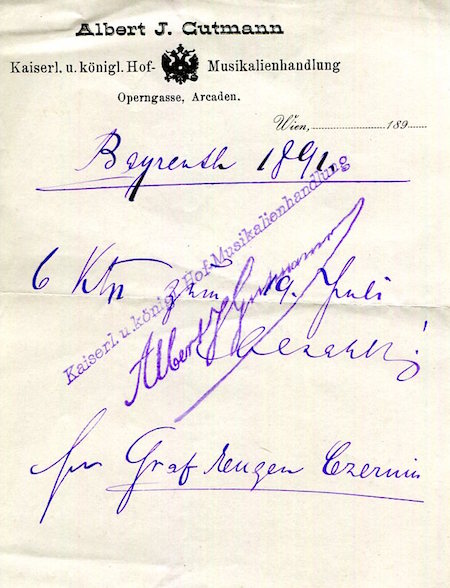 Albert J. Gutmann
Kaiserl. u. königl. Hof- Musikalienhandlung
Operngasse, Arcaden.
Wien, 189
Bayreuth 1891.
Kaiserl. u. königl. Hof-Musikalienhandlung
6 Ktn zum 19. Juli
Albert J. Gutmann
bezahlt
für Graf Eugen Czernin